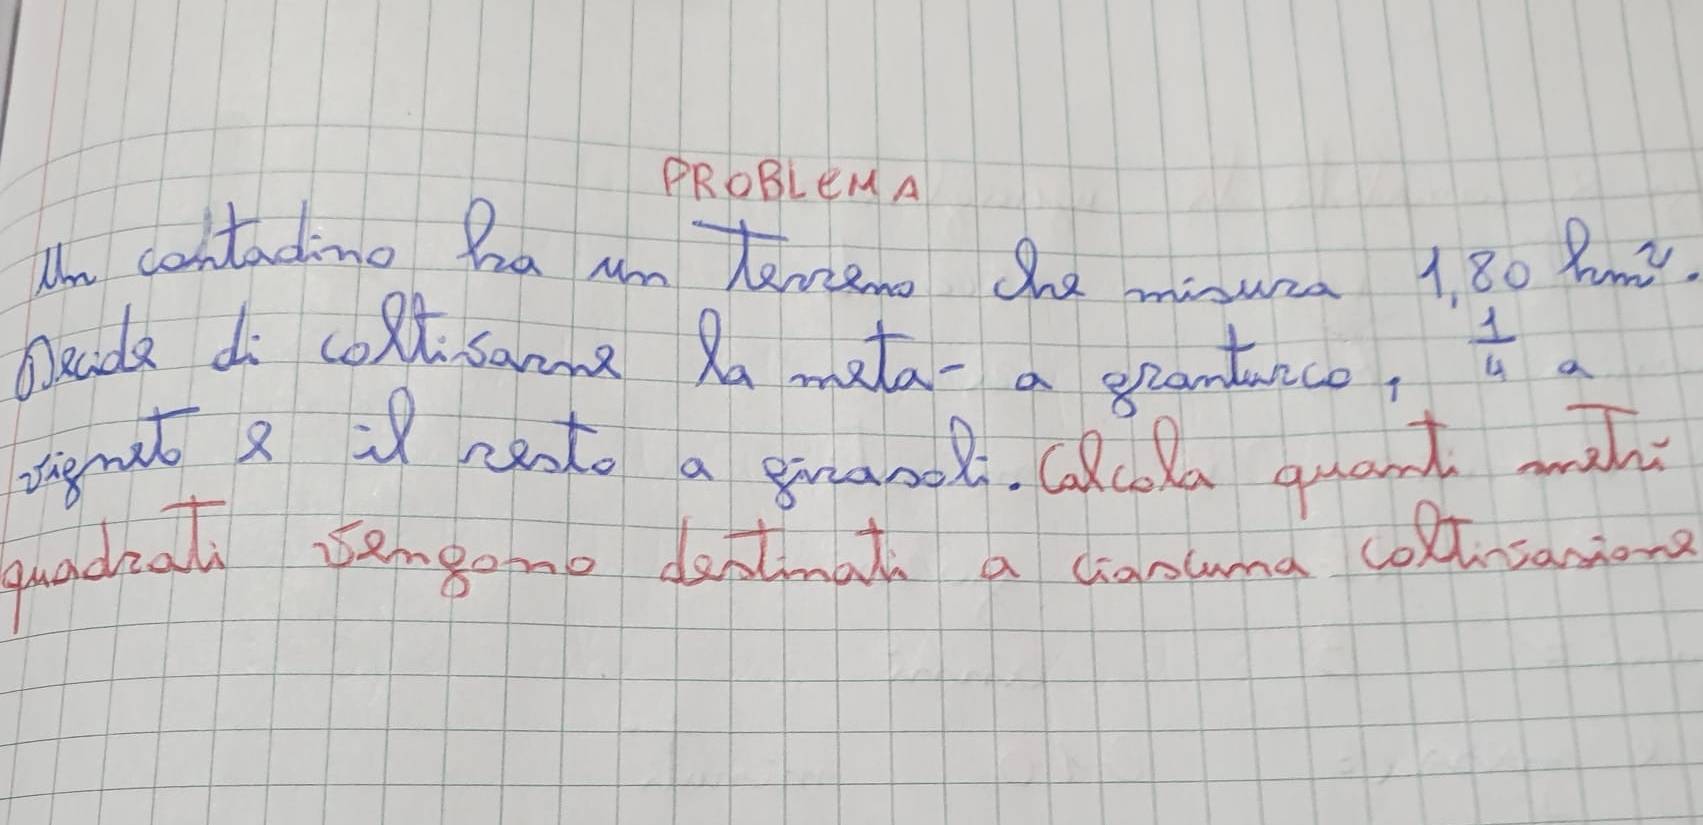 PROBLEMA
Un contadino ha un terreno che misura 1,80 hm².
Decide di coltivarne la meta- a granturco, 1/4 a
vigneto e il resto a girasoli. Calcola quanti metri
quadrati vengono destinati a ciascuna coltivazione